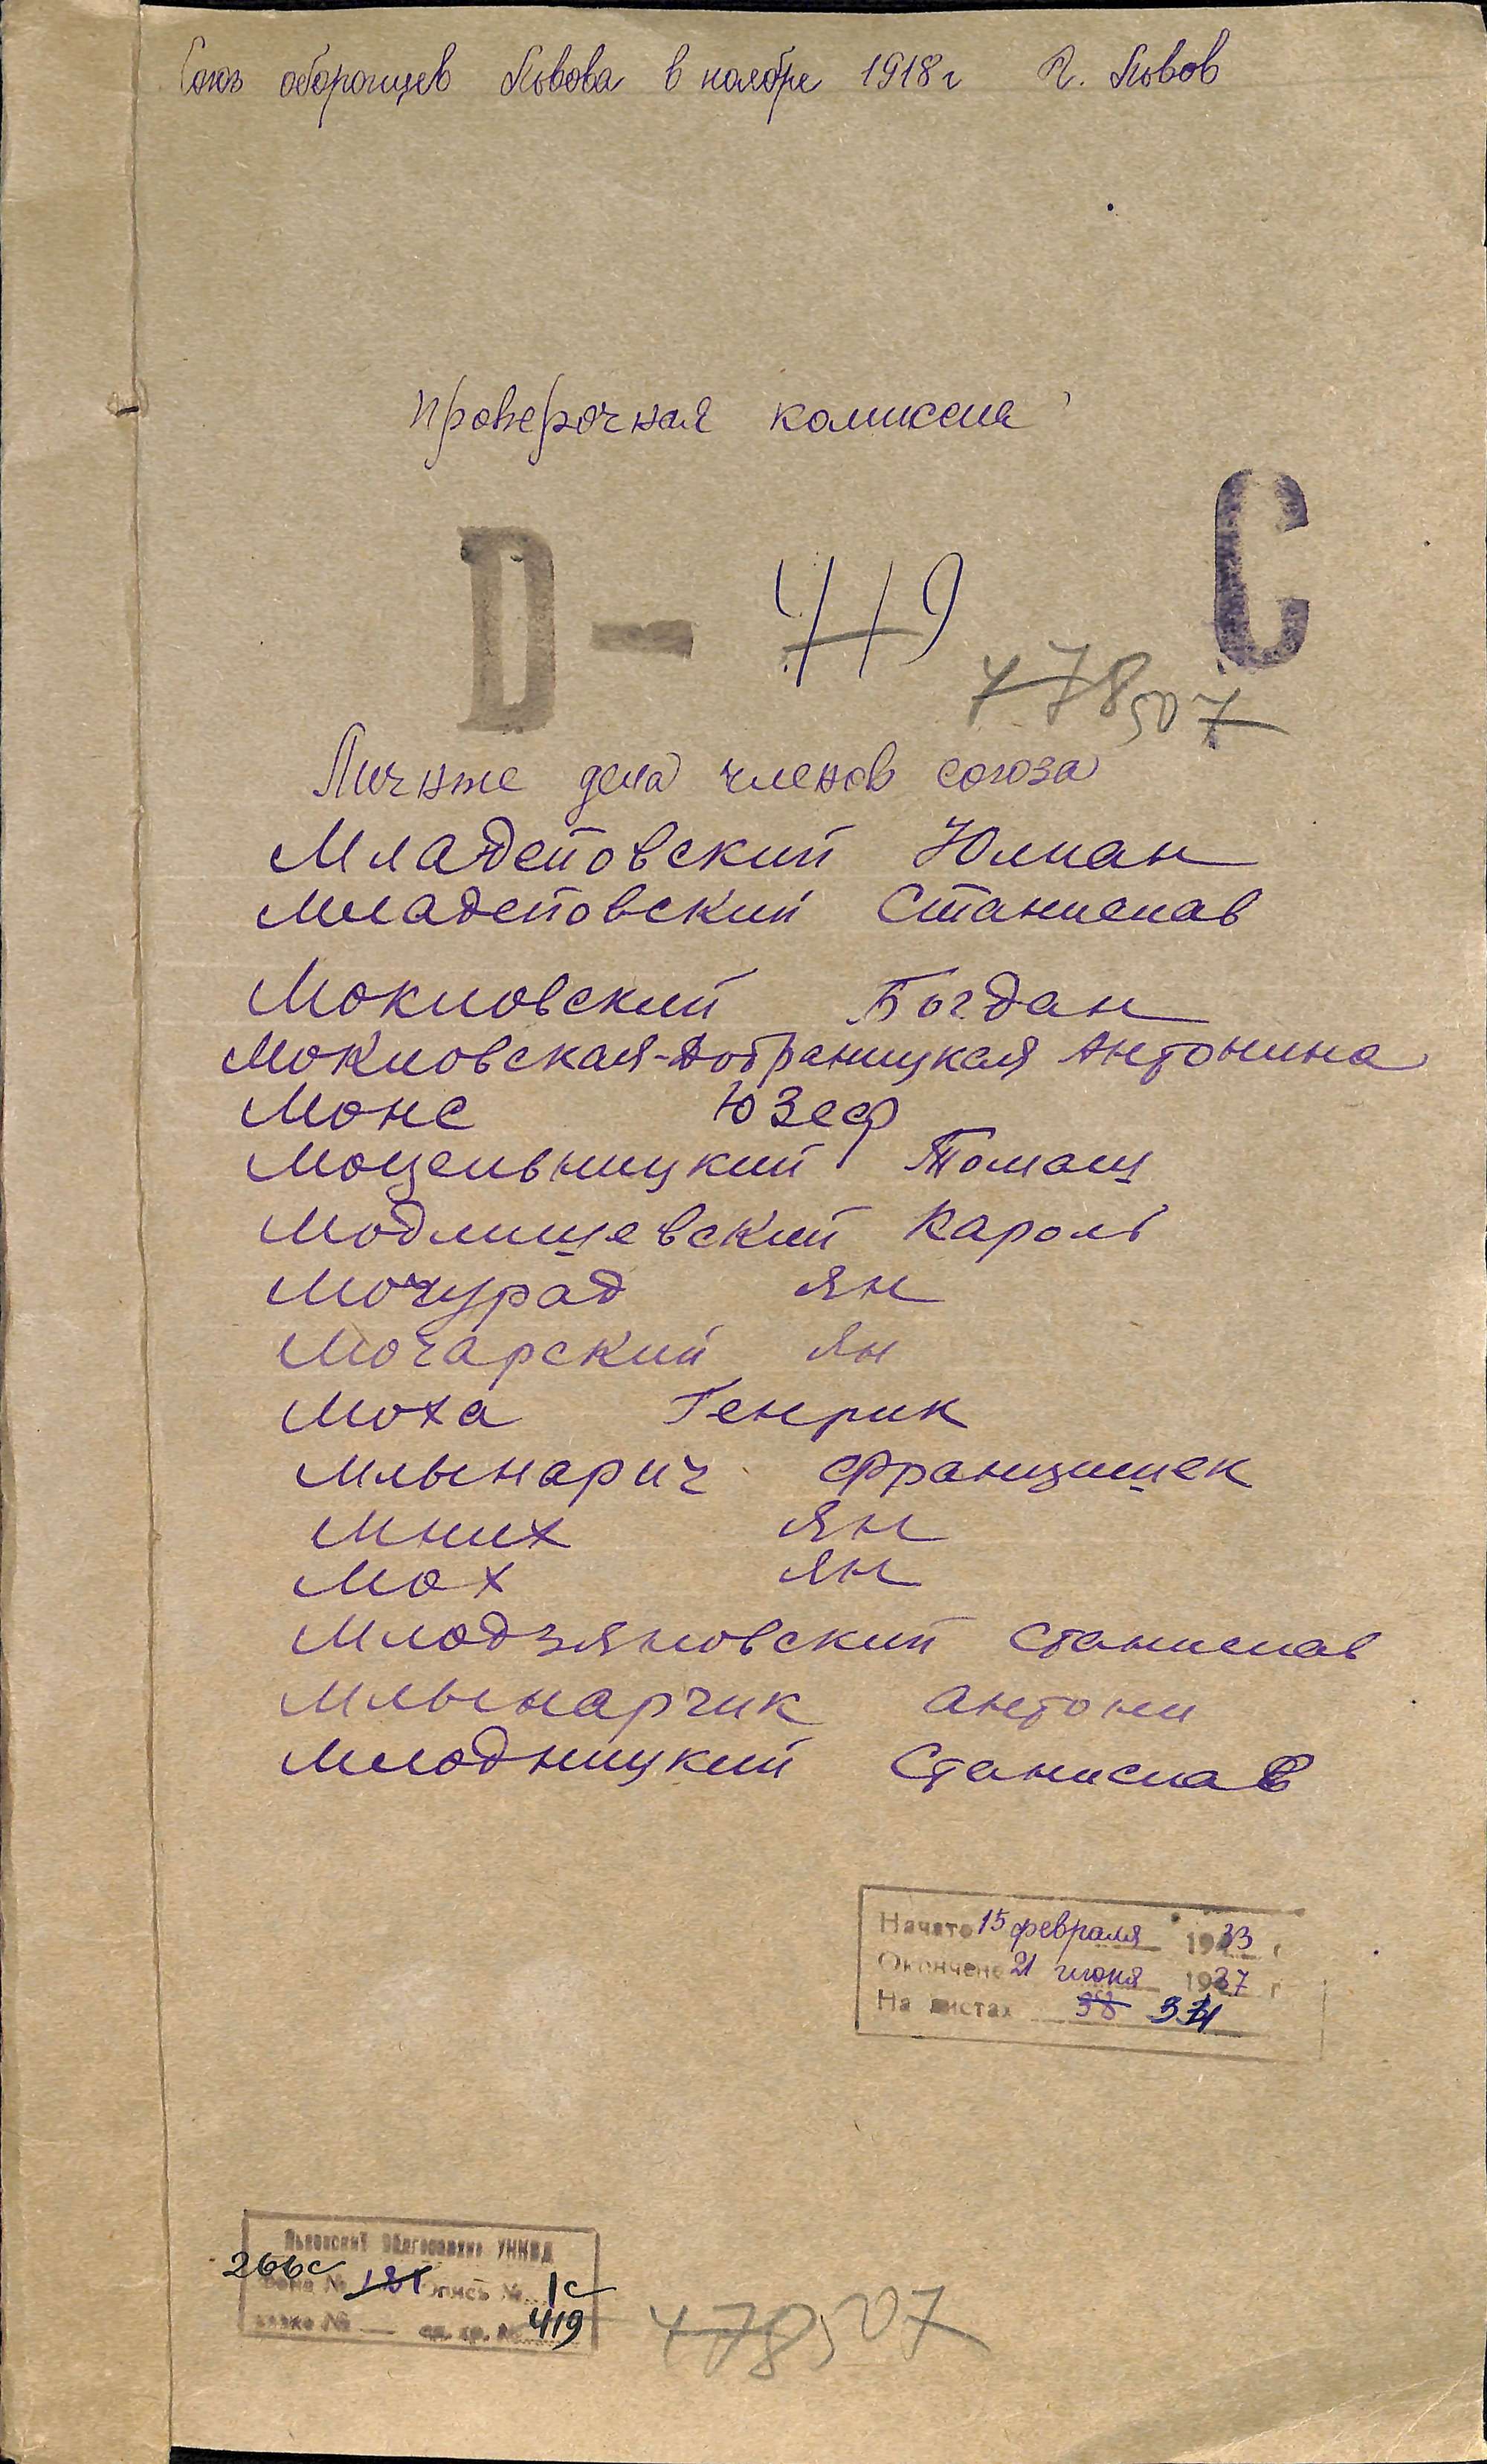 Союз оборонцев Львова в ноябре 1918 г г. Львов
Проверочная комиссия
C
D — 419
478 507
Личные дела членов союза
Младеповский Юлиан
Младеповский Станислав
Мокловский Богдан
Мокловская-Добраницкая Антонина
Монс Юзеф
Моцельницкий Томаш
Модлишевский Кароль
Мочурад Ян
Мочарский Ян
Моха Генрик
Млынарич Францишек
Мних Ян
Мох Ян
Млодзяновский Станислав
Млынарчик Антони
Млодницкий Станислав
Начато 15 февраля 1933 г
Окончено 21 июня 1937 г
На листах 38
Львовский Облгосархив УНКВД
266с
Фонд № 181 Опись № 1с
ед. хр. № 419
478 507